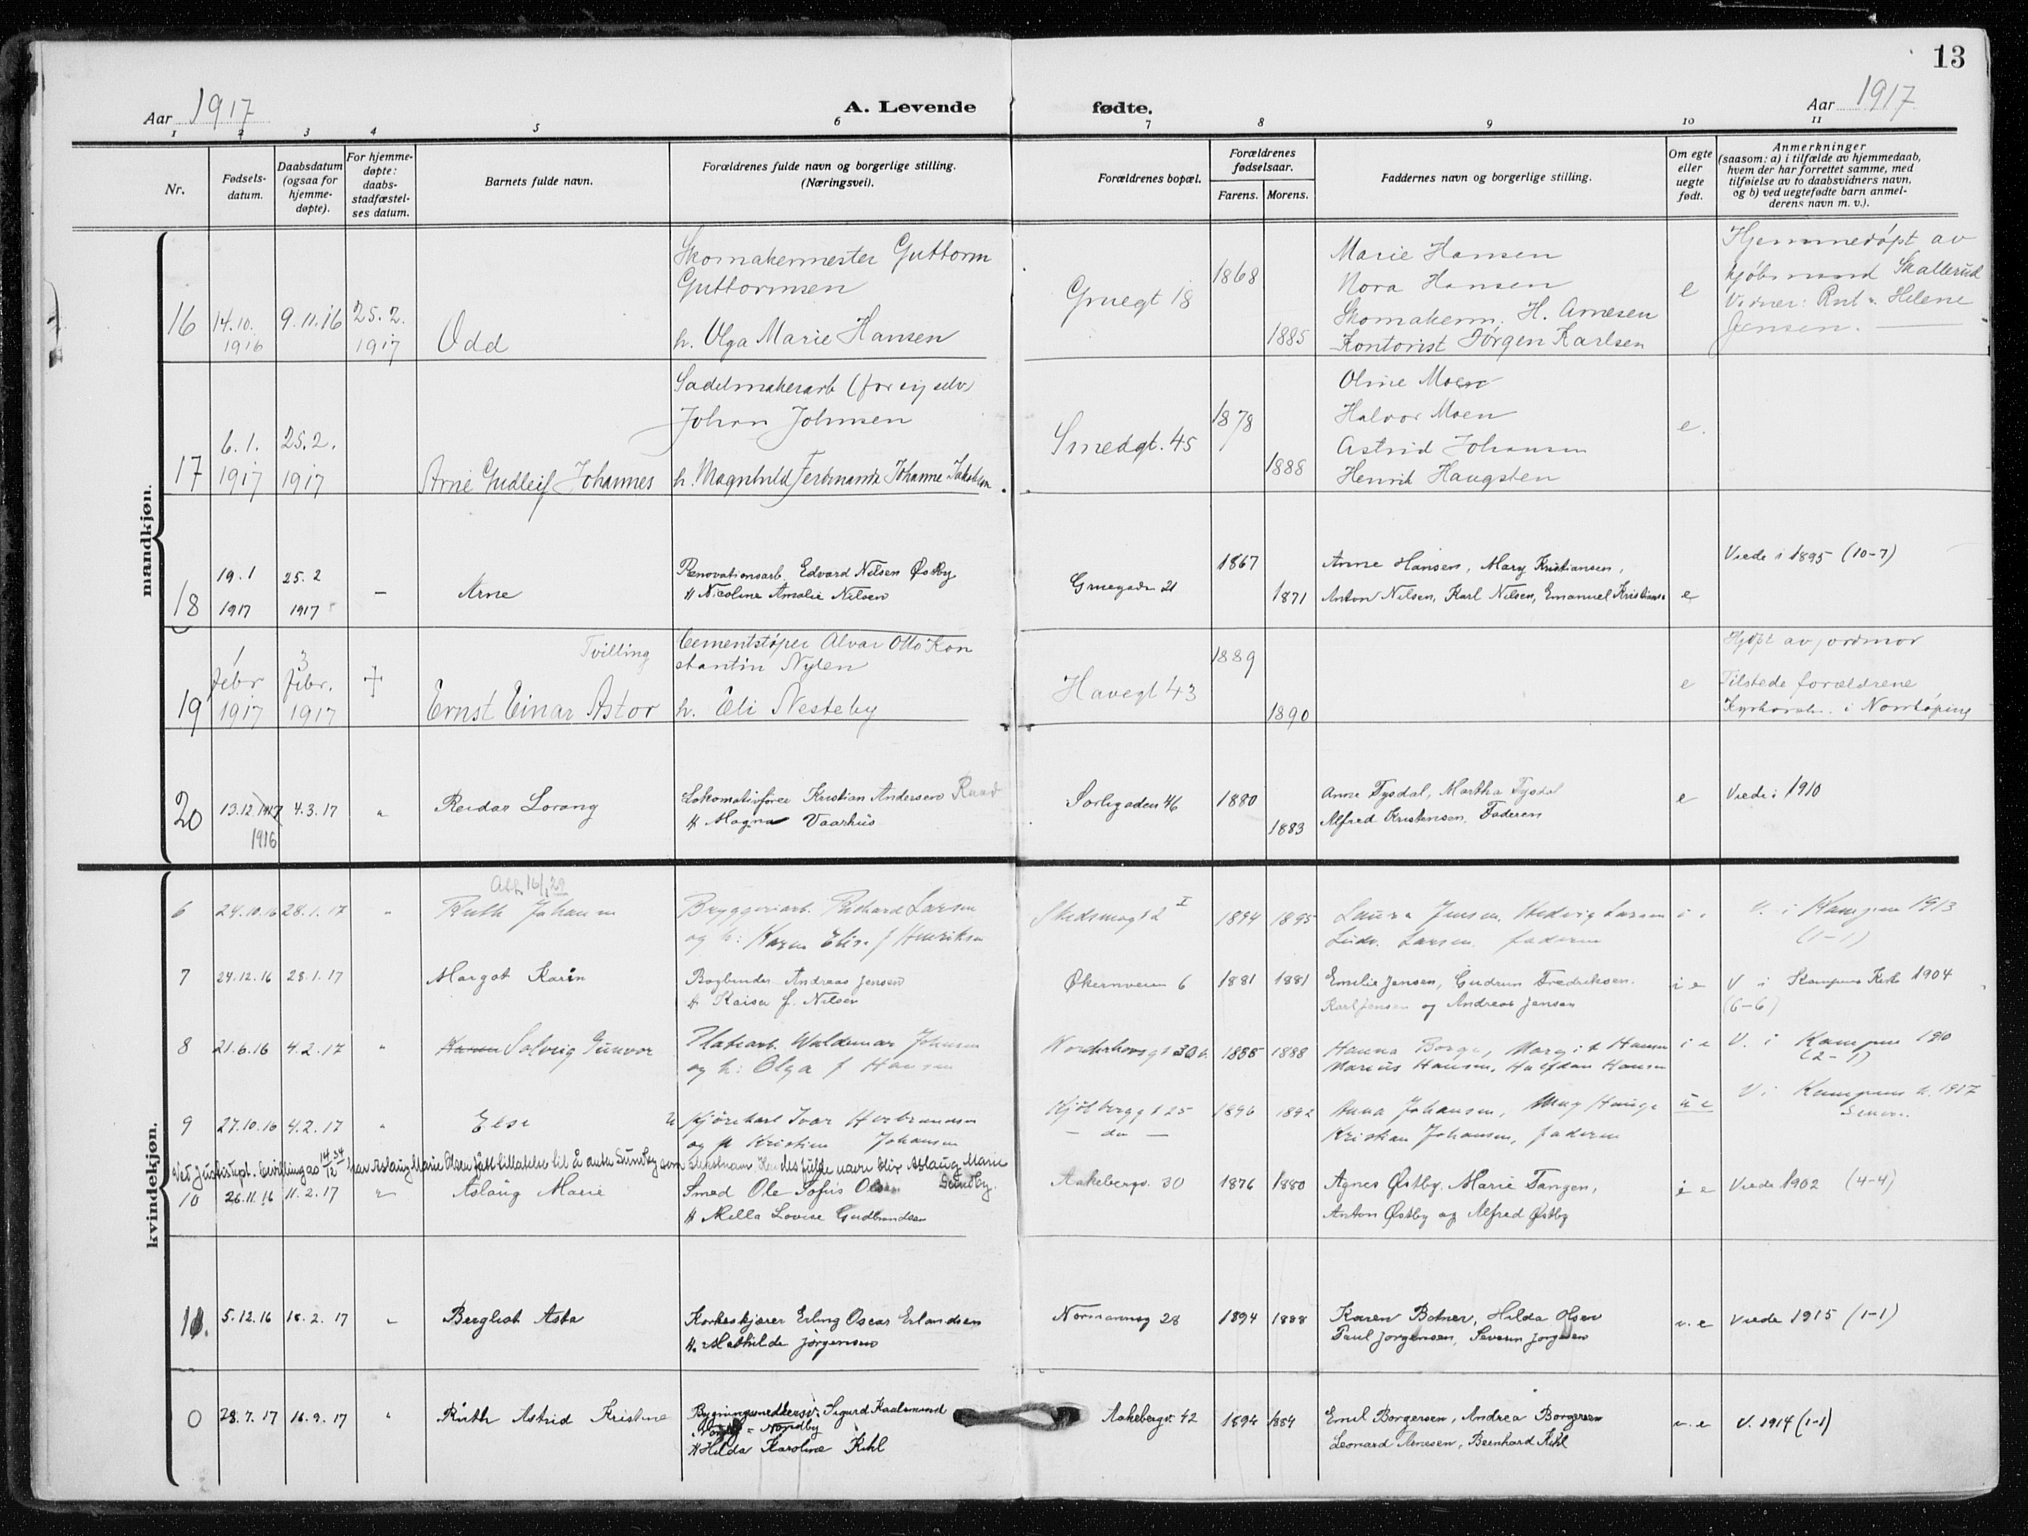 13
Aar 1917
A. Levende fødte.
Aar 1917
1 2 3 4 5 6 7 8 9 10 11
Nr.
Fødsels-
datum.
Daabsdatum
(ogsaa for
hjemme-
døpte).
For hjemme-
døpte:
daabs-
stadfæstel-
ses datum.
Barnets fulde navn.
Forældrenes fulde navn og borgerlige stilling.
(Næringsvei).
Forældrenes bopæl.
Forældrenes
fødselsaar.
Farens. Morens.
Faddernes navn og borgerlige stilling.
Om egte
eller
uegte
født.
Anmerkninger
(saasom: a) i tilfælde av hjemmedaab,
hvem der har forrettet samme, med
tilføielse av to daabsvidners navn,
og b) ved uegtefødte barn anmel-
derens navn m. v.).
mandkjøn.
16
14.10.
1916
9.11.16
25.2.
1917
Odd
Skomakermester Guttorm
Guttormsen
h. Olga Marie Hansen
Gruegt 18
1868
1885
Marie Hansen
Nora Hansen
Skomakerm. H. Arnesen
Kontorist Jørgen Karlsen
e
Hjemmedøpt av
kjøbmand Skallerud
Helene
Jensen.
17
6.1.
1917
25.2.
1917
Arne Gudleif Johannes
Sadelmakerarb (for sig selv)
Johan Johnsen
h. Magnhild Ferdinanda Johanne
Smedgt. 45
1878
1888
Oline Moen
Halvor Moen
Astrid Johansen
Henrik Haugsten
e.
18
19.1
1917
25.2
1917
-
Arne
Renovationsarb. Edvard Nilsen Østby
H Nicoline Amalie Nilsen
Gruegaden 21
1867
1871
Anne Hansen, Mary Kristiansen,
Anton Nilsen, Karl Nilsen, Emanuel
e
Viede i 1895 (10-7)
19
1
febr
1917
3
febr.
1917
+
Tvilling
Ernst Einar Astor
Cementstøper Alvar Otto Kon
stantin Nylen
h. Eli Nesteby
Havegt 43
1889
1890
e
Hjdøpt av jordmor
Tilstede forældrene
i Norrköping
20
13.12.1917
1916
4.3.17
"
Reidar Lorang
Lokomotivfører Kristian Andersen Ruud
H Magna Vaarhus
Sørligaden 46
1880
1883
Anne Tysdal, Martha Tysdal
Alfred Kristensen, Faderen
e
Viede i 1910
kvindekjøn.
6
24.10.16
28.1.17
"
Ruth Johanne
Bryggeriarb. Richard Larsen
og h: Karen Elise f Henriksen
I
1894
1895
Laura Jensen, Hedvig Larsen
Ludv. Larsen, faderen
V. i Kampen 1913
(1-1)
7
24.12.16
28.1.17
Margot Karin
Bogbinder Andreas Jensen
H Kaisa f. Nilsen
Økernveien 6
1881
1881
Emilie Jensen, Gudrun Fredriksen.
Karl Jensen og Andreas Jensen
i e
V i Kampens Kirke 1904
(6-6)
8
21.6.16
4.2.17
"
Solveig Gunvor
Platearb. Waldemar Johnsen
og h: Olga f Hansen
1885
1888
Hanna Borge, Margit Hansen
Marius Hansen, Halfdan Hansen
i e
V. i Kampen 190
(2-1)
9
27.10.16
4.2.17
"
Else
Kjørekarl Ivar Herbrandsen
og Kristine Johansen
Kjølberggt 25
- do -
1896
1892
Anna Johansen, May Hauge
Kristian Johansen, faderen
u e
V i Kampens k. 1917
Senere.
har Aslaug Marie Olsen fått tillatelse til å anta Sundby som slektsnavn. Hendes fulde navn blir Aslaug Marie
Sundby.
10
26.11.16
11.2.17
"
Aslaug Marie
Smed Ole Sofus Olsen
H Mella Lovise Gudbrandsen
Aakebergv. 30
1876
1880
Agnes Østby, Marie Tangen,
Anton Østby og Alfred Østby
i e
Viede 1902 (4-4)
11.
5.12.16
18.2.17
"
Bergliot Asta
Korkeskjærer Erling Oscar Erlandsen
H. Mathilde Jørgensen
Normannsg 28
1894
1888
Karen Botner, Hilda Olsen
Paul Jørgensen, Severin Jørgensen
i. e
Viede 1915 (1-1)
0
28.7.17
16.9.17
"
Ruth Astrid Kristine
Sigurd Kaalsmund
Nordby
H Hilda Karoline Kihl
Aakebergv. 42
1894
1884
Emil Borgersen, Andrea Borgersen
Leonard Arnesen, Bernhard Kihl
i. e
V. 1914 (1-1)